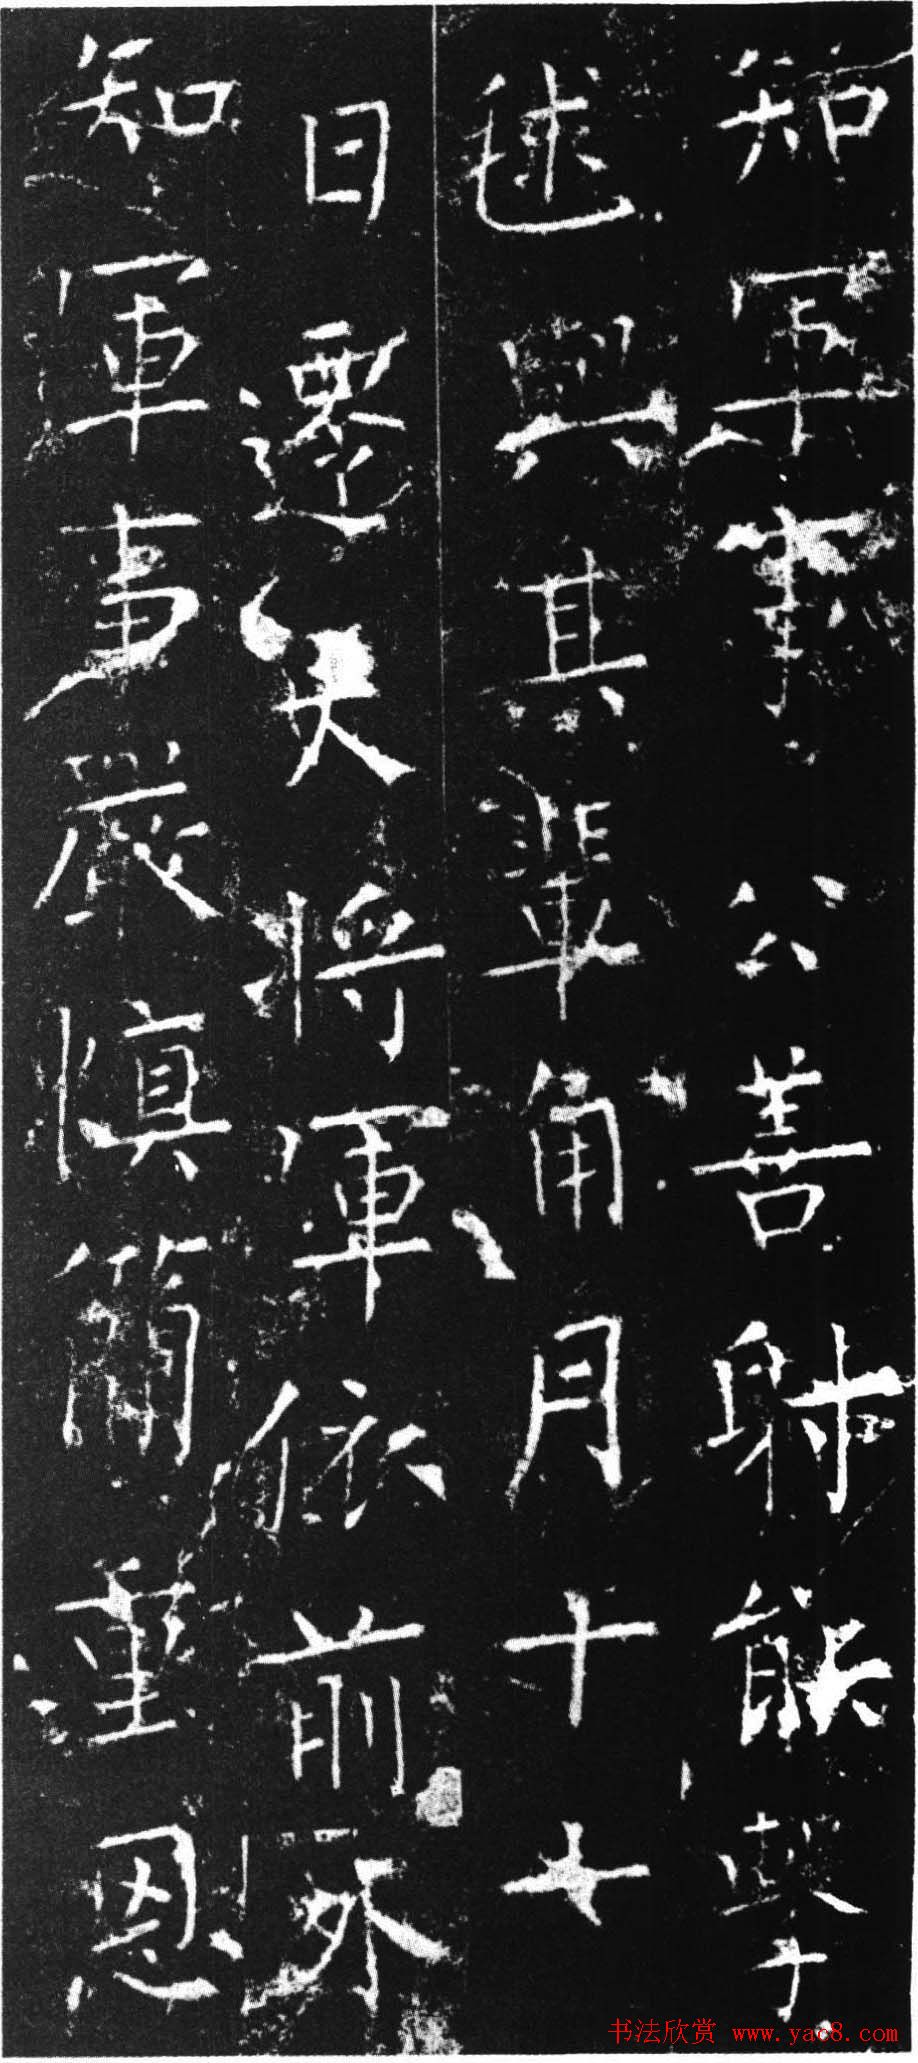 知軍事 公善射能擊
毬與其輩角月十
日遷大將軍依前
知軍事嚴慎簡重恩
书法欣赏 www.yac8.com